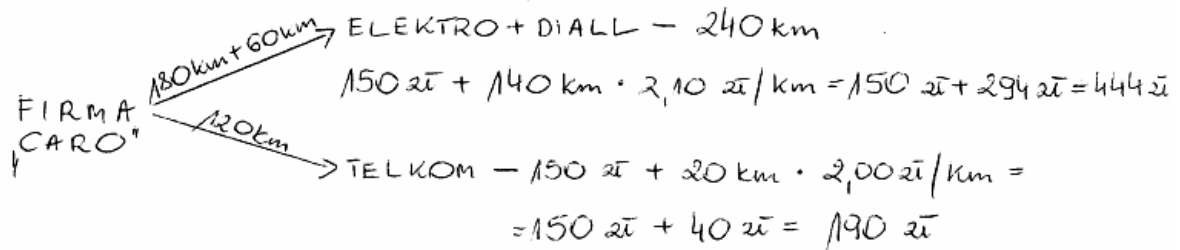 180km + 60km
ELEKTRO + DIALL – 240 km
150 zł + 140 km · 2,10 zł/km = 150 zł + 294 zł = 444 zł
FIRMA
„CARO”
120km
TELKOM – 150 zł + 20 km · 2,00 zł/km =
= 150 zł + 40 zł = 190 zł